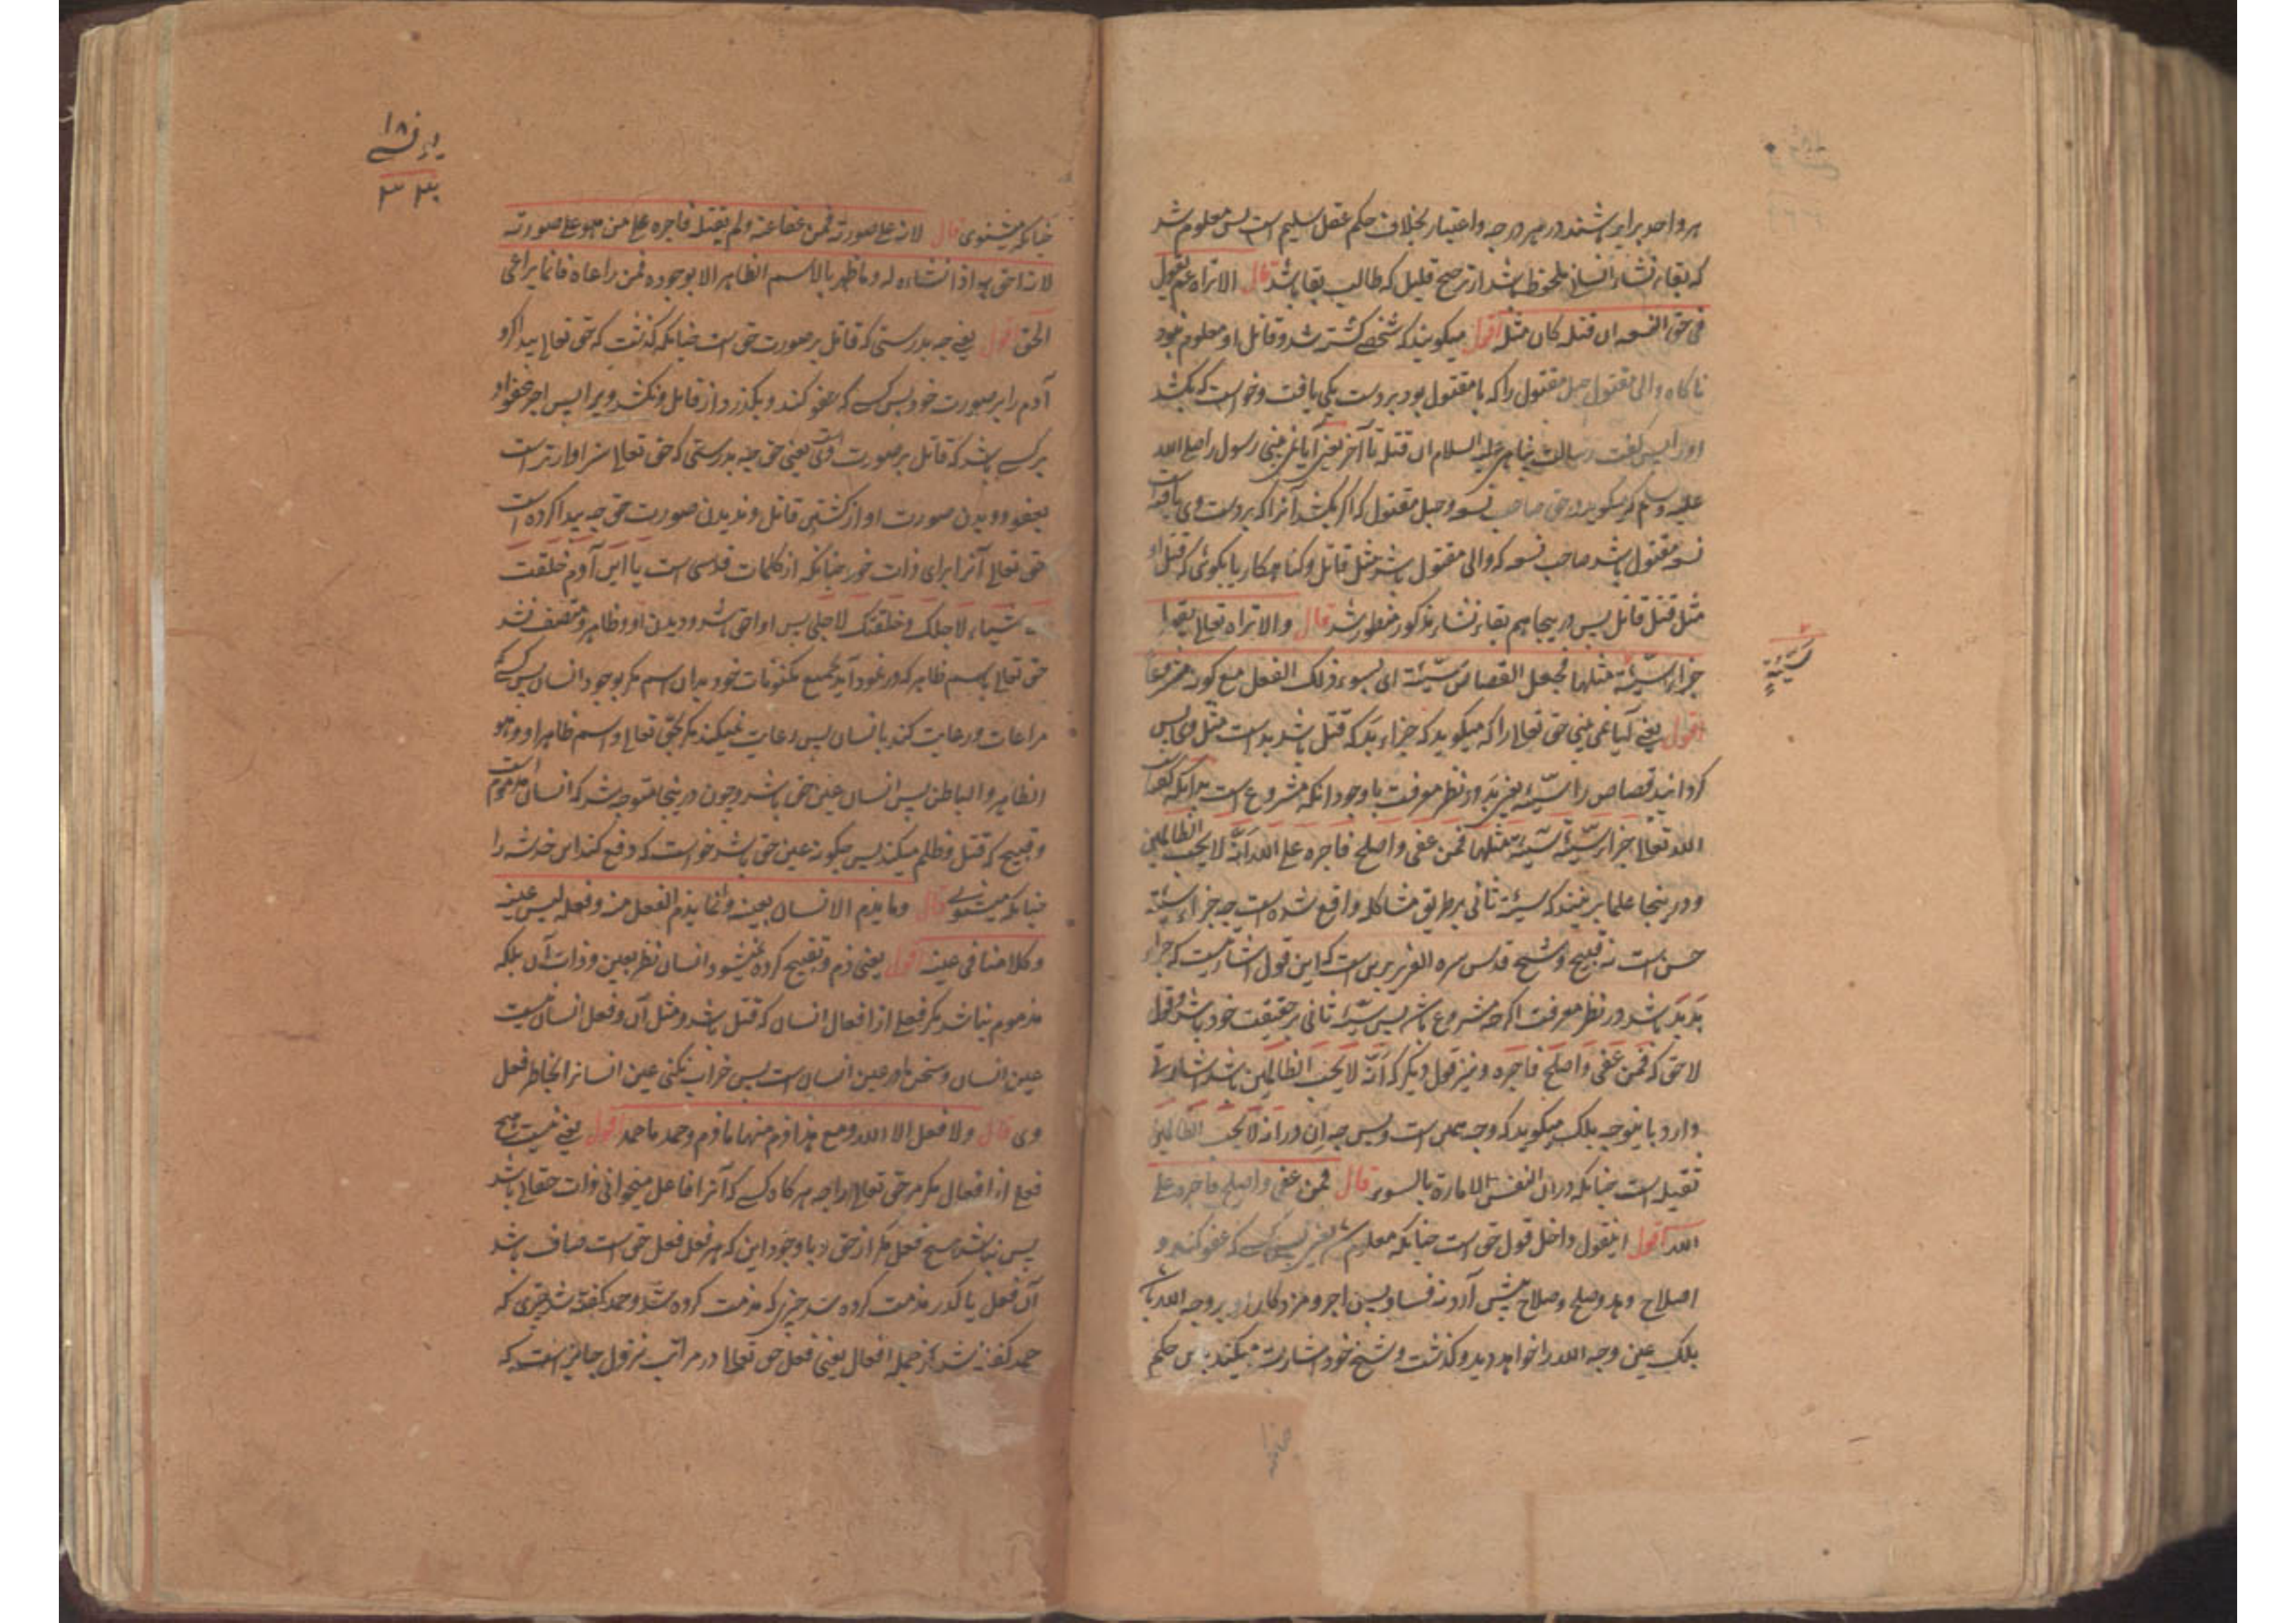 هر واحد برابر باشند در هر درجه و اعتبار بخلاف حکم عقل سلیم است پس معلوم شد
که بقاء نشاء انسانی ملحوظ باشد از ترجیح قلیل که طالب بقا باشد قال الا تراه عم یقول
فی حق النسعه ان قتله کان مثله اقول میگویند که شخصی کشته شد و قاتل او معلوم نبود
ناکاه والی مقتول حبل مقتول را که با مقتول بود بردست یکی یافت و خواست که بکشد
اورا پس گفت رسالت پناهی علیه السلام ان قتله تا آخر یعنی آیا نمی بینی رسول را صلی الله
علیه وسلم که میگوید در حق صاحب نسعه و حبل مقتول که اگر بکشد آنرا که بردست وی یافته است
نسعه مقتول باشد صاحب نسعه که والی مقتول باشد مثل قاتل و کناهکار یا بگوئی که قتل او
مثل قتل قاتل پس درینجا هم بقاء نشاء مذکور منظور شد قال و الا تراه تعالی یقول
جزاء سیّئة مثلها فجعل القصاص سیّئة ای یسوء ذلک الفعل مع کونه مشروعا
اقول یعنی آیا نمی بینی حق تعالی را که میگوید که جزاء بد که قتل باشد بد است مثل وی پس
کردانید قصاص را سیّئه یعنی بد در نظر معرفت باوجود آنکه مشروع است بدانکه گفت
الله تعالی جزاء سیّئة سیّئة مثلها فمن عفی و اصلح فاجره علی الله انّه لا یحب الظالمین
و درینجا علما برینند که سیئة ثانی بر طریق مشاکله واقع شده است چه جزاء سیئة
حسن است نه قبیح و شیخ قدس سره العزیز برین است که این قول اشارتست که جزاء
بد بد باشد در نظر معرفت اکرچه مشروع باشد پس سیّئه ثانی بر حقیقت خود باشد و قول
لاحق که فمن عفی و اصلح فاجره و نیز قول دیکر که انّه لا یحب الظالمین باشد اشارتی
دارد باینوجه بلک میگوید که وجه همین است و بس چه ان در انه لا یحب الظالمین
تقیله است چنانکه در ان النفس لامارة بالسوء قال فمن عفی و اصلح فاجره علی
الله اقول اینقول داخل قول حق است چنانکه معلوم شد یعنی پس کسی که عفو کند و
اصلاح دهد وصلح وصلاح پیش آرد نه فساد پس اجر و مزدکان او بر وجه الله باشد
بلک عین وجه الله را خواهد دید و کذشت و شیخ خود اشارت میکند باین حکم
سیّئةٍ
چنانکه
۱۸
یونسی
۳۳۰
چنانکه میشنوی قال لانه علی صورته فمن عفا عنه ولم یقتله فاجره علی من هو علی صورته
لانه احق به اذ انشاءه له وما ظهر بالاسم الظاهر الا بوجوده فمن راعاه فانما یراعی
الحق اقول یعنی چه بدرستی که قاتل بر صورت حق است چنانکه کذشت که حق تعالی پیدا کرد
آدم را بر صورت خود پس کسی که عفو کند و بگذرد از قاتل و نکشد ویرا پس اجر عفو او
بر کسی باشد که قاتل بر صورت وی است یعنی حق چه بدرستی که حق تعالی سزاوارتر است
بعفو و دیدن صورت او از کشتن قاتل و ندیدن صورت حق چه پیدا کرده است
حق تعالی آنرا برای ذات خود چنانکه از کلمات قدسی است یا ابن آدم خلقت
الاشیاء لاجلک و خلقتک لاجلی پس او احق باشد و دیدن او و ظاهر و متصف نشد
حق تعالی باسم ظاهر که در نمود آید بجمیع مکنونات خود بدان اسم مکر بوجود انسان پس کسی که
مراعات و رعایت کند با نسان پس رعایت نمیکند مکر بحق تعالی و اسم ظاهر او و هو
الظاهر و الباطن پس انسان عین حق باشد و چون درینجا متوجه شد که انسان مذموم است
و قبیح که قتل و ظلم میکند پس چکونه عین حق باشد خواست که دفع کند این خدشه را
چنانکه میشنوی قال وما یذم الانسان بعینه و انما یذم الفعل منه و فعله لیس عینه
و کلامنا فی عینه اقول یعنی ذم و تقبیح کرده نمیشود انسان نظر بعین و ذات آن بلکه
مذموم نباشد مکر فعلی از افعال انسان که قتل باشد و مثل آن و فعل انسان نیست
عین انسان و سخن ما در عین انسان است پس خراب نکنی عین انسانرا بخاطر فعل
وی قال ولا فعل الا لله ومع هذا ذم منها ما ذم وحمد ما حمد اقول یعنی نیست هیچ
فعلی از افعال مکر مر حق تعالی را چه هر کاه کسی که آنرا فاعل میخوانی ذات حقتعالی باشد
پس نباشد هیچ فعل مکر از حق و باوجود این که هر فعل فعل حق است مضاف باشد
آن فعل یا کدر مذمت کرده شد چیزی که مذمت کرده شد و حمد کفته شد چیزی که
حمد کفته شد از جمله افعال یعنی فعل حق تعالی در مراتب نزول جایز است که